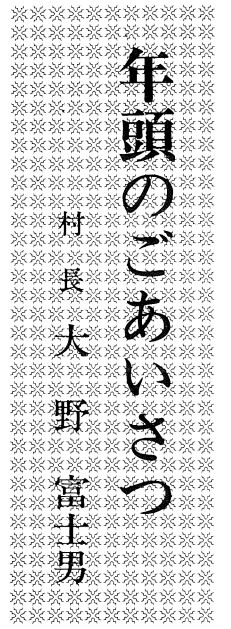 年頭のごあいさつ
村長 大野 富士男